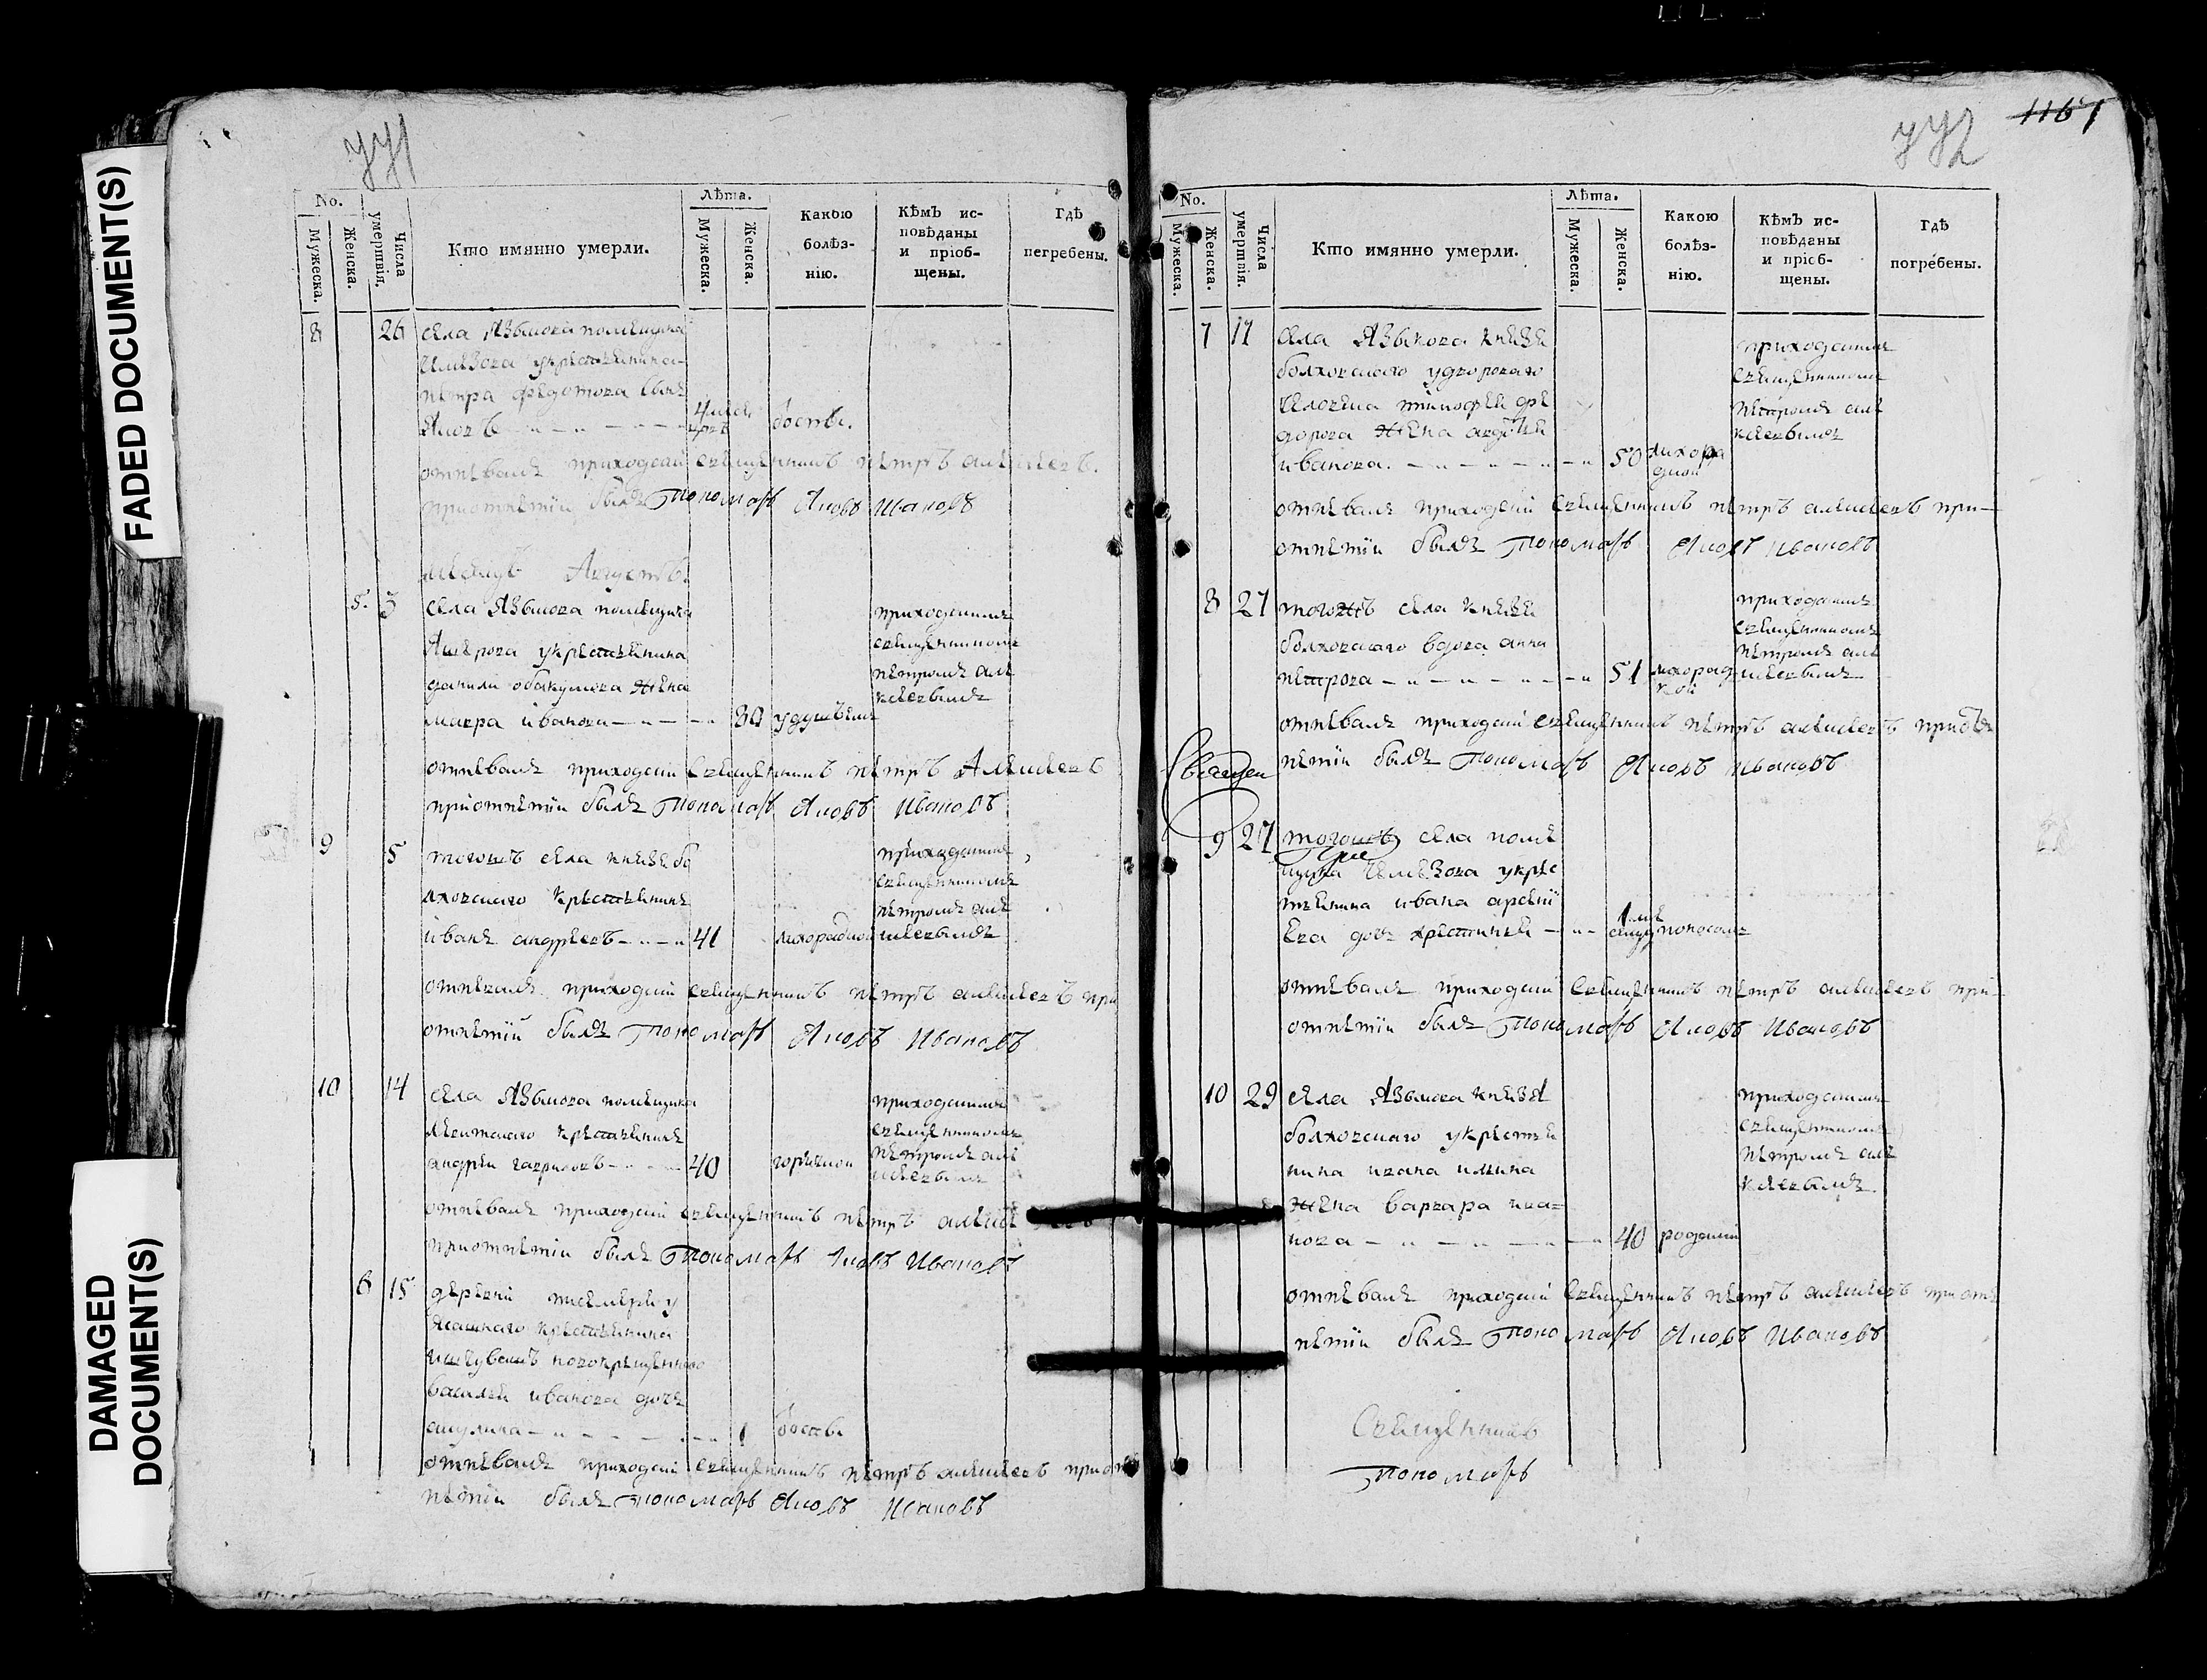 FADED DOCUMENT(S)
DAMAGED
DOCUMENT(S)
441
No.
Мужеска.
Женска.
Числа
умертвія.
Кто имянно умерли.
Лѣта.
Мужеска.
Женска.
Какою
болѣз-
нію.
Кѣмъ ис-
повѣданы
и пріоб-
щены.
Гдѣ
погребены.
8 26 села Языкова помещика
укрестьянина
петра федотова сынъ
Яковъ 4 воспе.
отпевалъ приходской священникъ петръ алексеевъ.
приотпетіи былъ Пономарь Яковъ Ивановъ
месяцъ Августъ.
5. 3 села Языкова помещика
укрестьянина
данилы обакумова жена
мавра иванова 80 удушьемъ
приходскимъ
священникомъ
петромъ але
ксеевымъ
отпевалъ приходской священникъ петръ Алексеевъ
приотпетіи былъ Пономарь Яковъ Ивановъ
9 5 тогожъ села князя бо
лховскаго крестьянинъ
иванъ андреевъ 41 лихорадкой
приходскимъ
священникомъ
петромъ але
ксеевымъ
отпевалъ приходской священникъ петръ алексеевъ при
отпетіи былъ Пономарь Яковъ Ивановъ
10 14 села Языкова помещика
крестьянинъ
андрей гавриловъ 40 горячкой
приходскимъ
священникомъ
петромъ але
ксеевымъ
отпевалъ приходской священникъ петръ алексеевъ
приотпетіи былъ Пономарь Яковъ Ивановъ
6 15 деревни у
ясашнаго крестьянина
новокрещеннаго
василья иванова дочь
акулина 1 воспе
отпевалъ приходской священникъ петръ алексеевъ приот
петіи былъ пономарь Яковъ Ивановъ
442
1161
No.
Мужеска.
Женска.
Числа
умертвія.
Кто имянно умерли.
Лѣта.
Мужеска.
Женска.
Какою
болѣз-
нію.
Кѣмъ ис-
повѣданы
и пріоб-
щены.
Гдѣ
погребены.
7 17 села Языкова князя
болховскаго удвороваго
человека тимофея фе
дорова жена авдотья
иванова. 50 лихора
дкой
приходскимъ
священникомъ
петромъ але
ксеевымъ
отпевалъ приходской священникъ петръ алексеевъ при-
отпетіи былъ Пономарь Яковъ Ивановъ
8 27 тогожъ села князя
болховскаго вдова анна
петрова 51 лихорад
кой
приходскимъ
священникомъ
петромъ але
ксеевымъ
отпевалъ приходской священникъ петръ алексеевъ приот
петіи былъ Пономарь Яковъ Ивановъ
Священ
9 27 тогожъ села поме
щика укрес
тьянина ивана арсенть
ева дочь 1 поносомъ
отпевалъ приходской священникъ петръ алексеевъ при-
отпетіи былъ Пономарь Яковъ Ивановъ
10 29 села Языкова князя
болховскаго укрестья
нина ивана
жена варвара ива=
нова 40 родами
приходскимъ
священникомъ
петромъ але
ксеевымъ
отпевалъ приходской священникъ петръ алексеевъ приот
петіи былъ Пономарь Яковъ Ивановъ
Священникъ
Пономарь